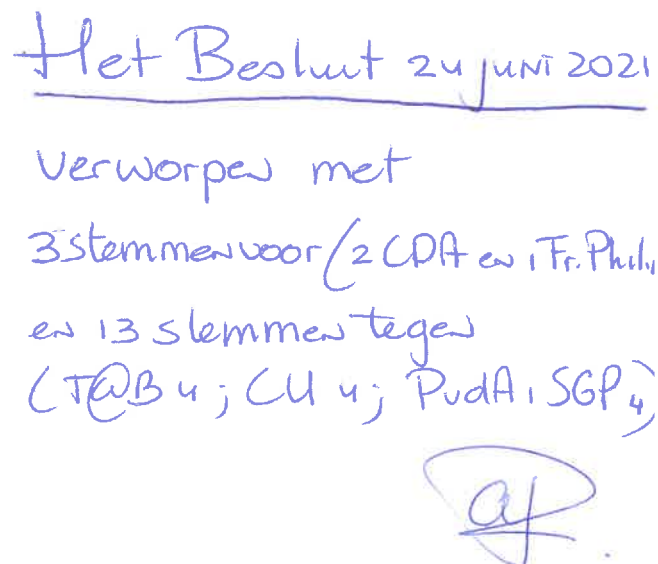 Het Besluit 24 juni 2021
verworpen met
3 stemmen voor (2 CDA en 1 Fr. Phili
en 13 stemmen tegen
(T@B 4; CU 4; PvdA 1 SGP 4)